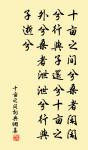 十亩之间兮桑者闲闲
兮行与子还兮十亩之
外兮桑者泄泄兮行与
子逝兮
十亩之间原典辑集